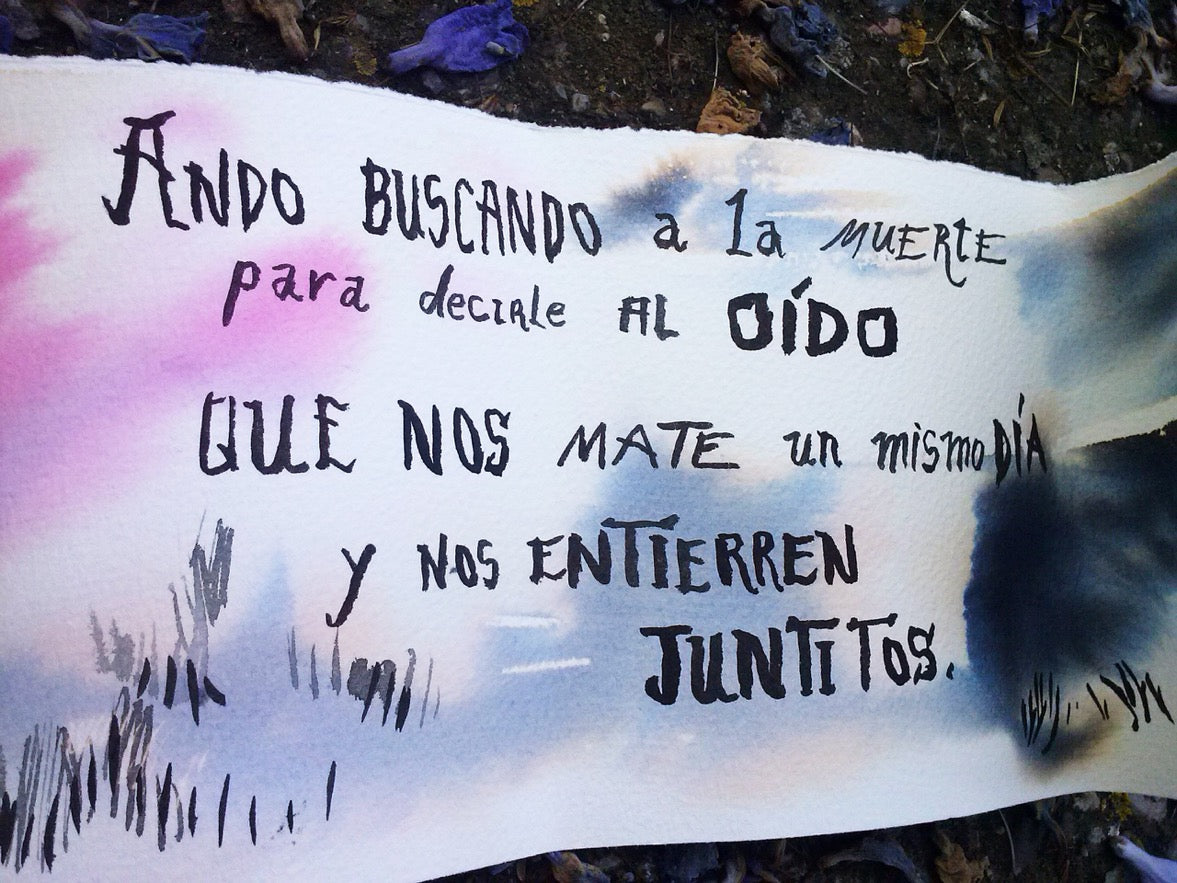 Ando BUSCANDO a la MUERTE
para decirle AL OÍDO
QUE NOS MATE un mismo DÍA
y NOS ENTIERREN
JUNTITOS.